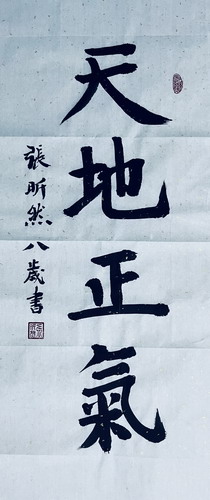 天地正氣
張昕然八歲書